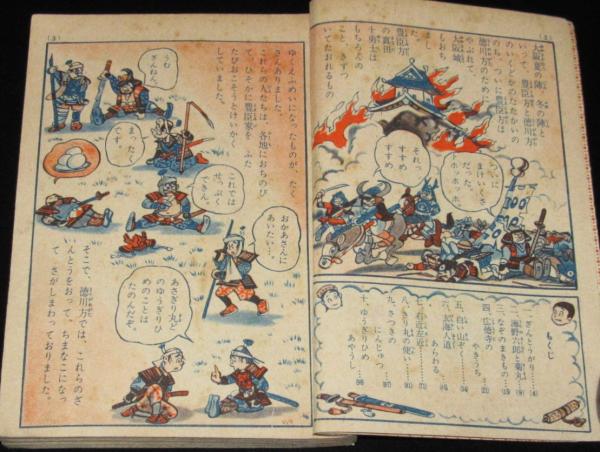 (2)
大阪夏の陣、冬の陣と
いって、豊臣方と徳川方
のいくどかのたたかいの
のち、ついに豊臣方は
徳川方のために
やぶれて、
大阪城
もおち
ました。
豊臣方
の真田
十勇士は
もちろんの
こと、きずつ
いてたおれるもの
それっ
すすめ
すすめ
まけいくさ
だった。
トホッホッホ。
もくじ
一、ざんとうがり
二、海野六郎と菊丸
三、なぞのまきもの
四、広徳寺の
五、白い山ぞく
六、三好清海入道
七、右近左近
八、きり札の使い
九、さつきの
にんじゅつ
十、ゆうぎりひめ
あやうし
(3)
ゆくえふめいになったものが、たく
さんありました。
これらの人たちは、各地におちのび
て、ひそかに豊臣家を ふた
たびおこそうとけいかく
していました。
うむ
ざんねん。
まったく
です。
これでは
せっぷく
できん。
おかあさんに
あいたい…。
あさぎり丸ど
のゆうぎりひ
めのことは
たのんだぞ。
そこで、徳川方では、これらのざ
んとうをおって、ちまなこになっ
て さがしまわっておりました。